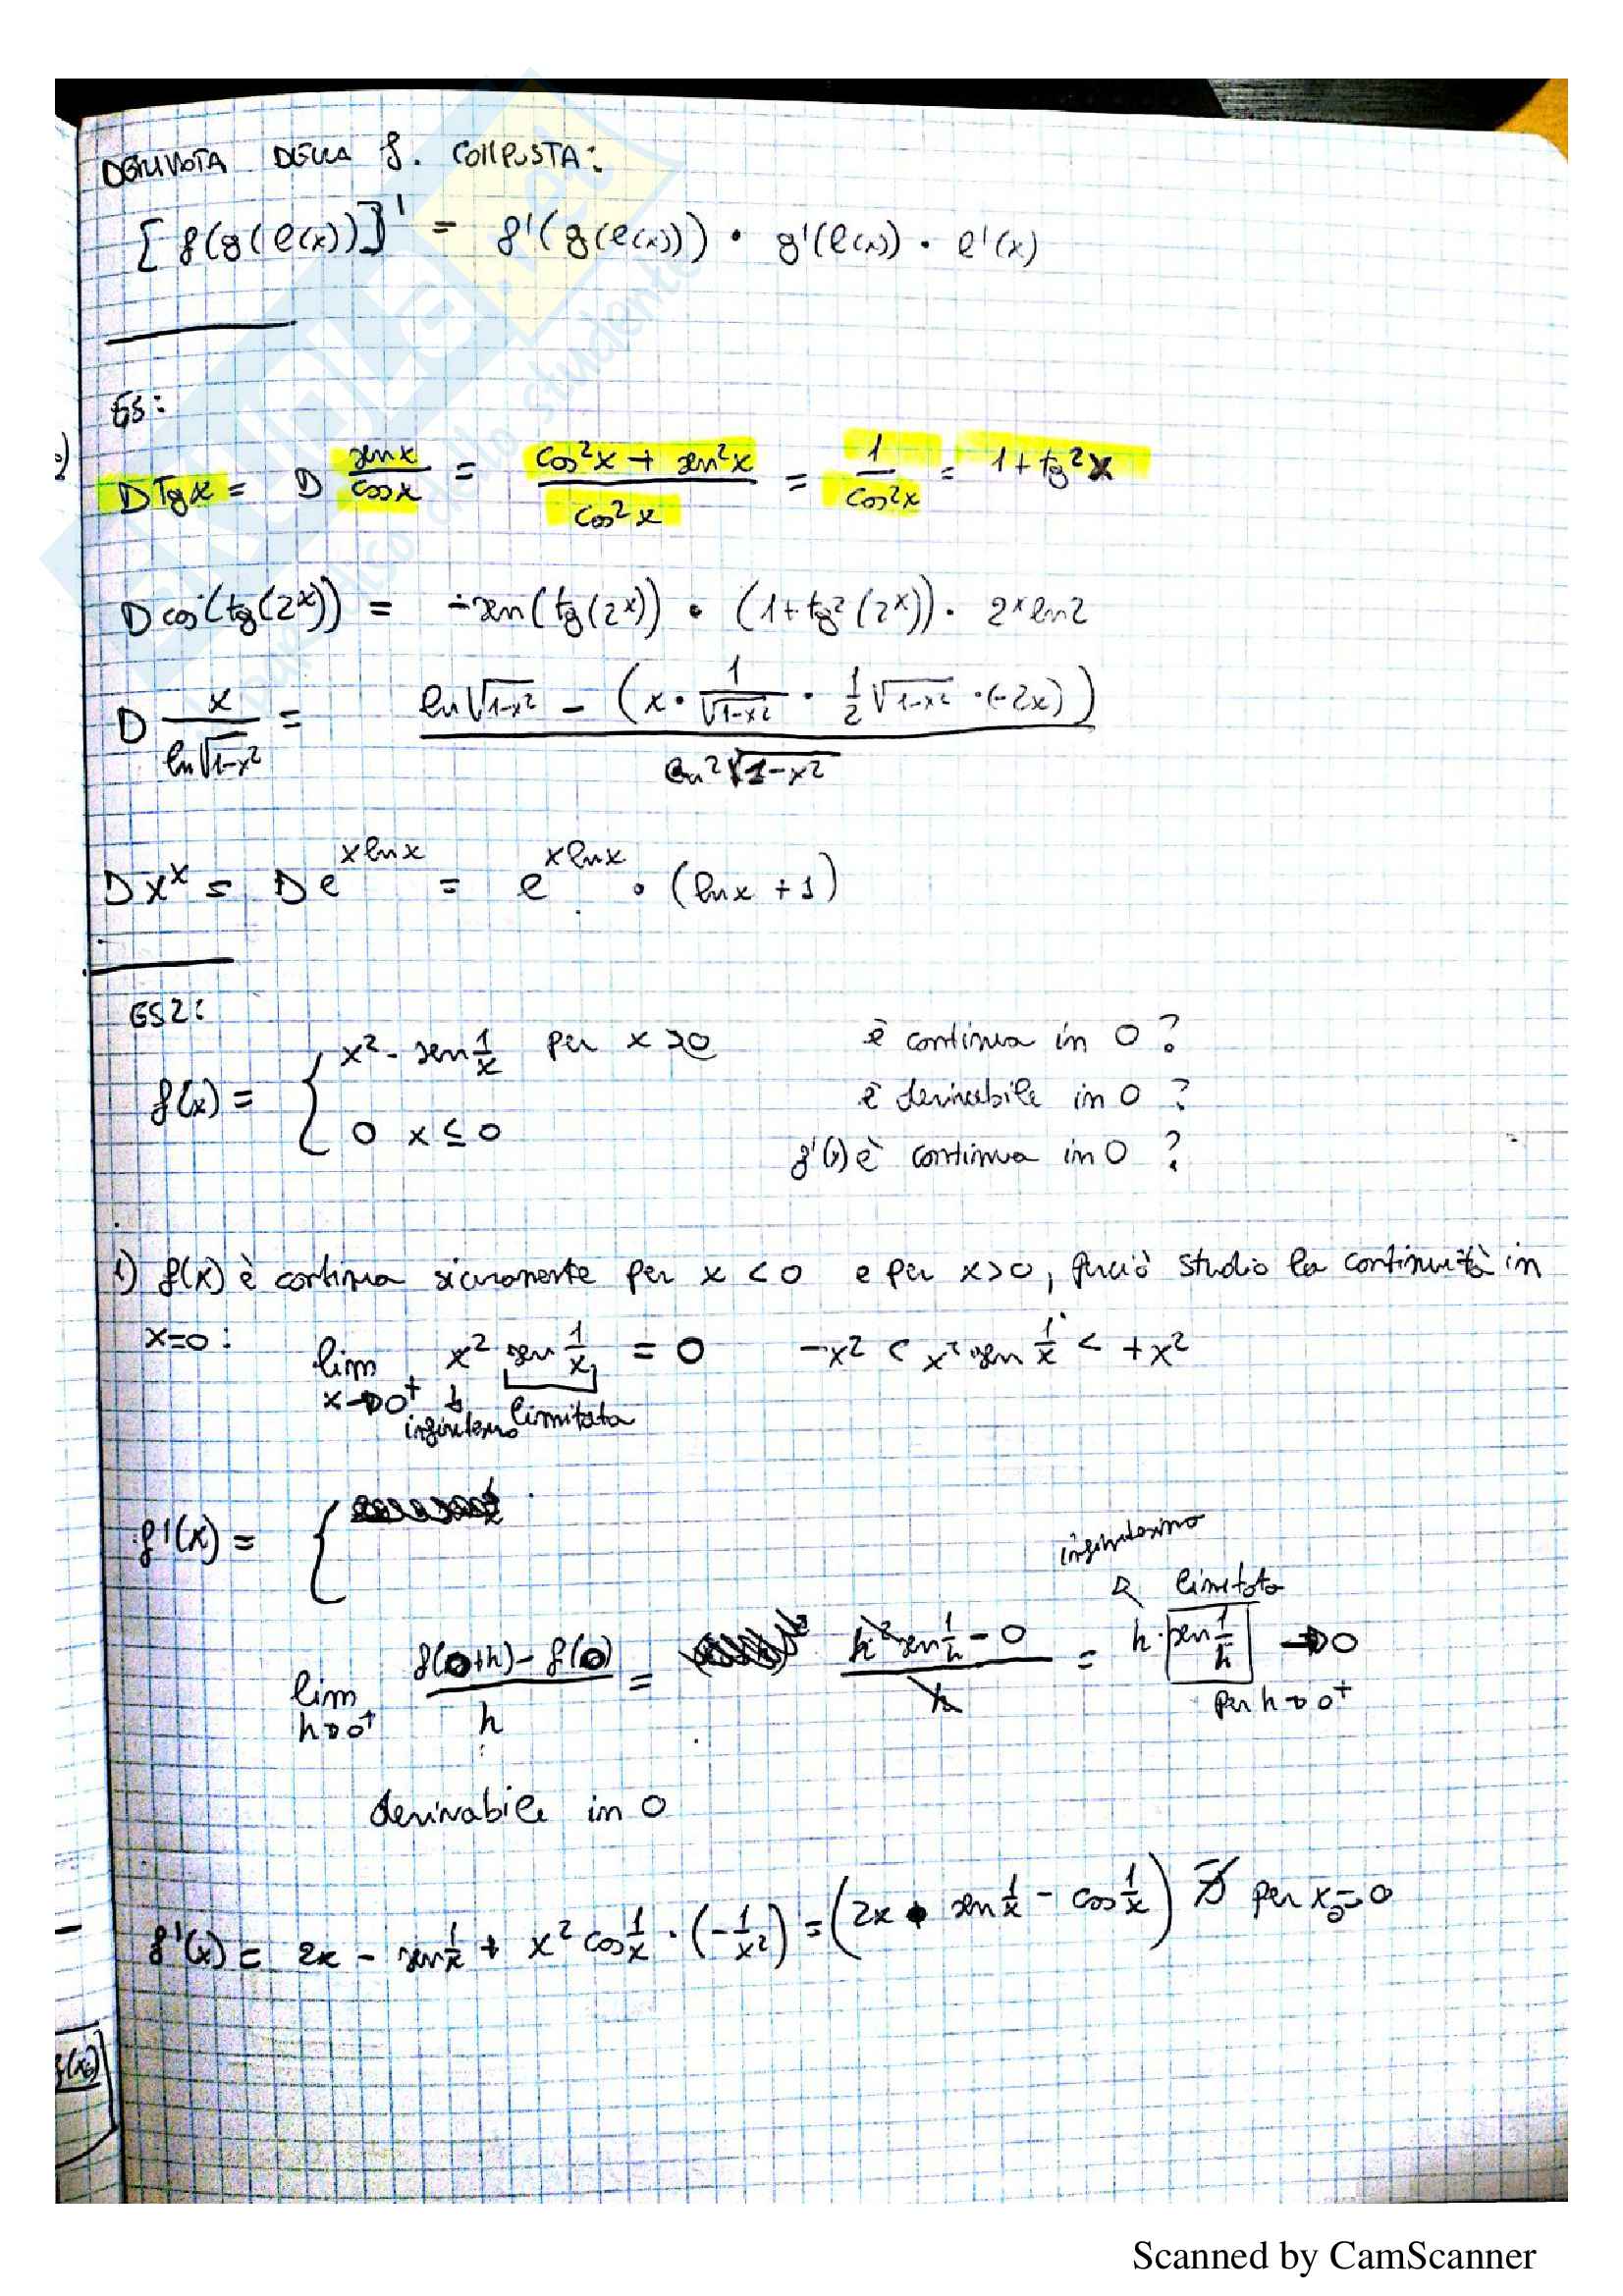 DERIVATA DELLA f. COMPOSTA:
[f(g(l(x))]' = f'(g(l(x))) • g'(l(x)) • l'(x)
ES:
D Tgx = D senx/cosx = cos²x + sen²x / cos²x = 1/cos²x = 1 + tg²x
D cos(tg(2ˣ)) = -sen(tg(2ˣ)) • (1+tg²(2ˣ)) • 2ˣ ln2
D x/ln√1-x² = ln√1-x² - (x • 1/√1-x² • 1/2 √1-x² • (-2x)) / ln²√1-x²
D xˣ = D e^xlnx = e^xlnx • (lnx + 1)
ES2:
f(x) = { x² - sen 1/x per x >0
0 x ≤ 0
è continua in 0 ?
è derivabile in 0 ?
f'(x) è continua in 0 ?
1) f(x) è continua sicuramente per x < 0 e per x>0, perciò studio la continuità in
x=0: lim x→0⁺ x² sen 1/x = 0 -x² < x² sen 1/x < +x²
infinitesimo limitata
f'(x) = {
infinitesimo
limitata
lim h→0⁺ f(0+h) - f(0) / h = h² sen 1/h - 0 / h = h • sen 1/h → 0
per h→0⁺
derivabile in 0
f'(x) = 2x - sen 1/x + x² cos 1/x • (-1/x²) = (2x • sen 1/x - cos 1/x) ∄ per x₀=0
f(x₀)
Scanned by CamScanner